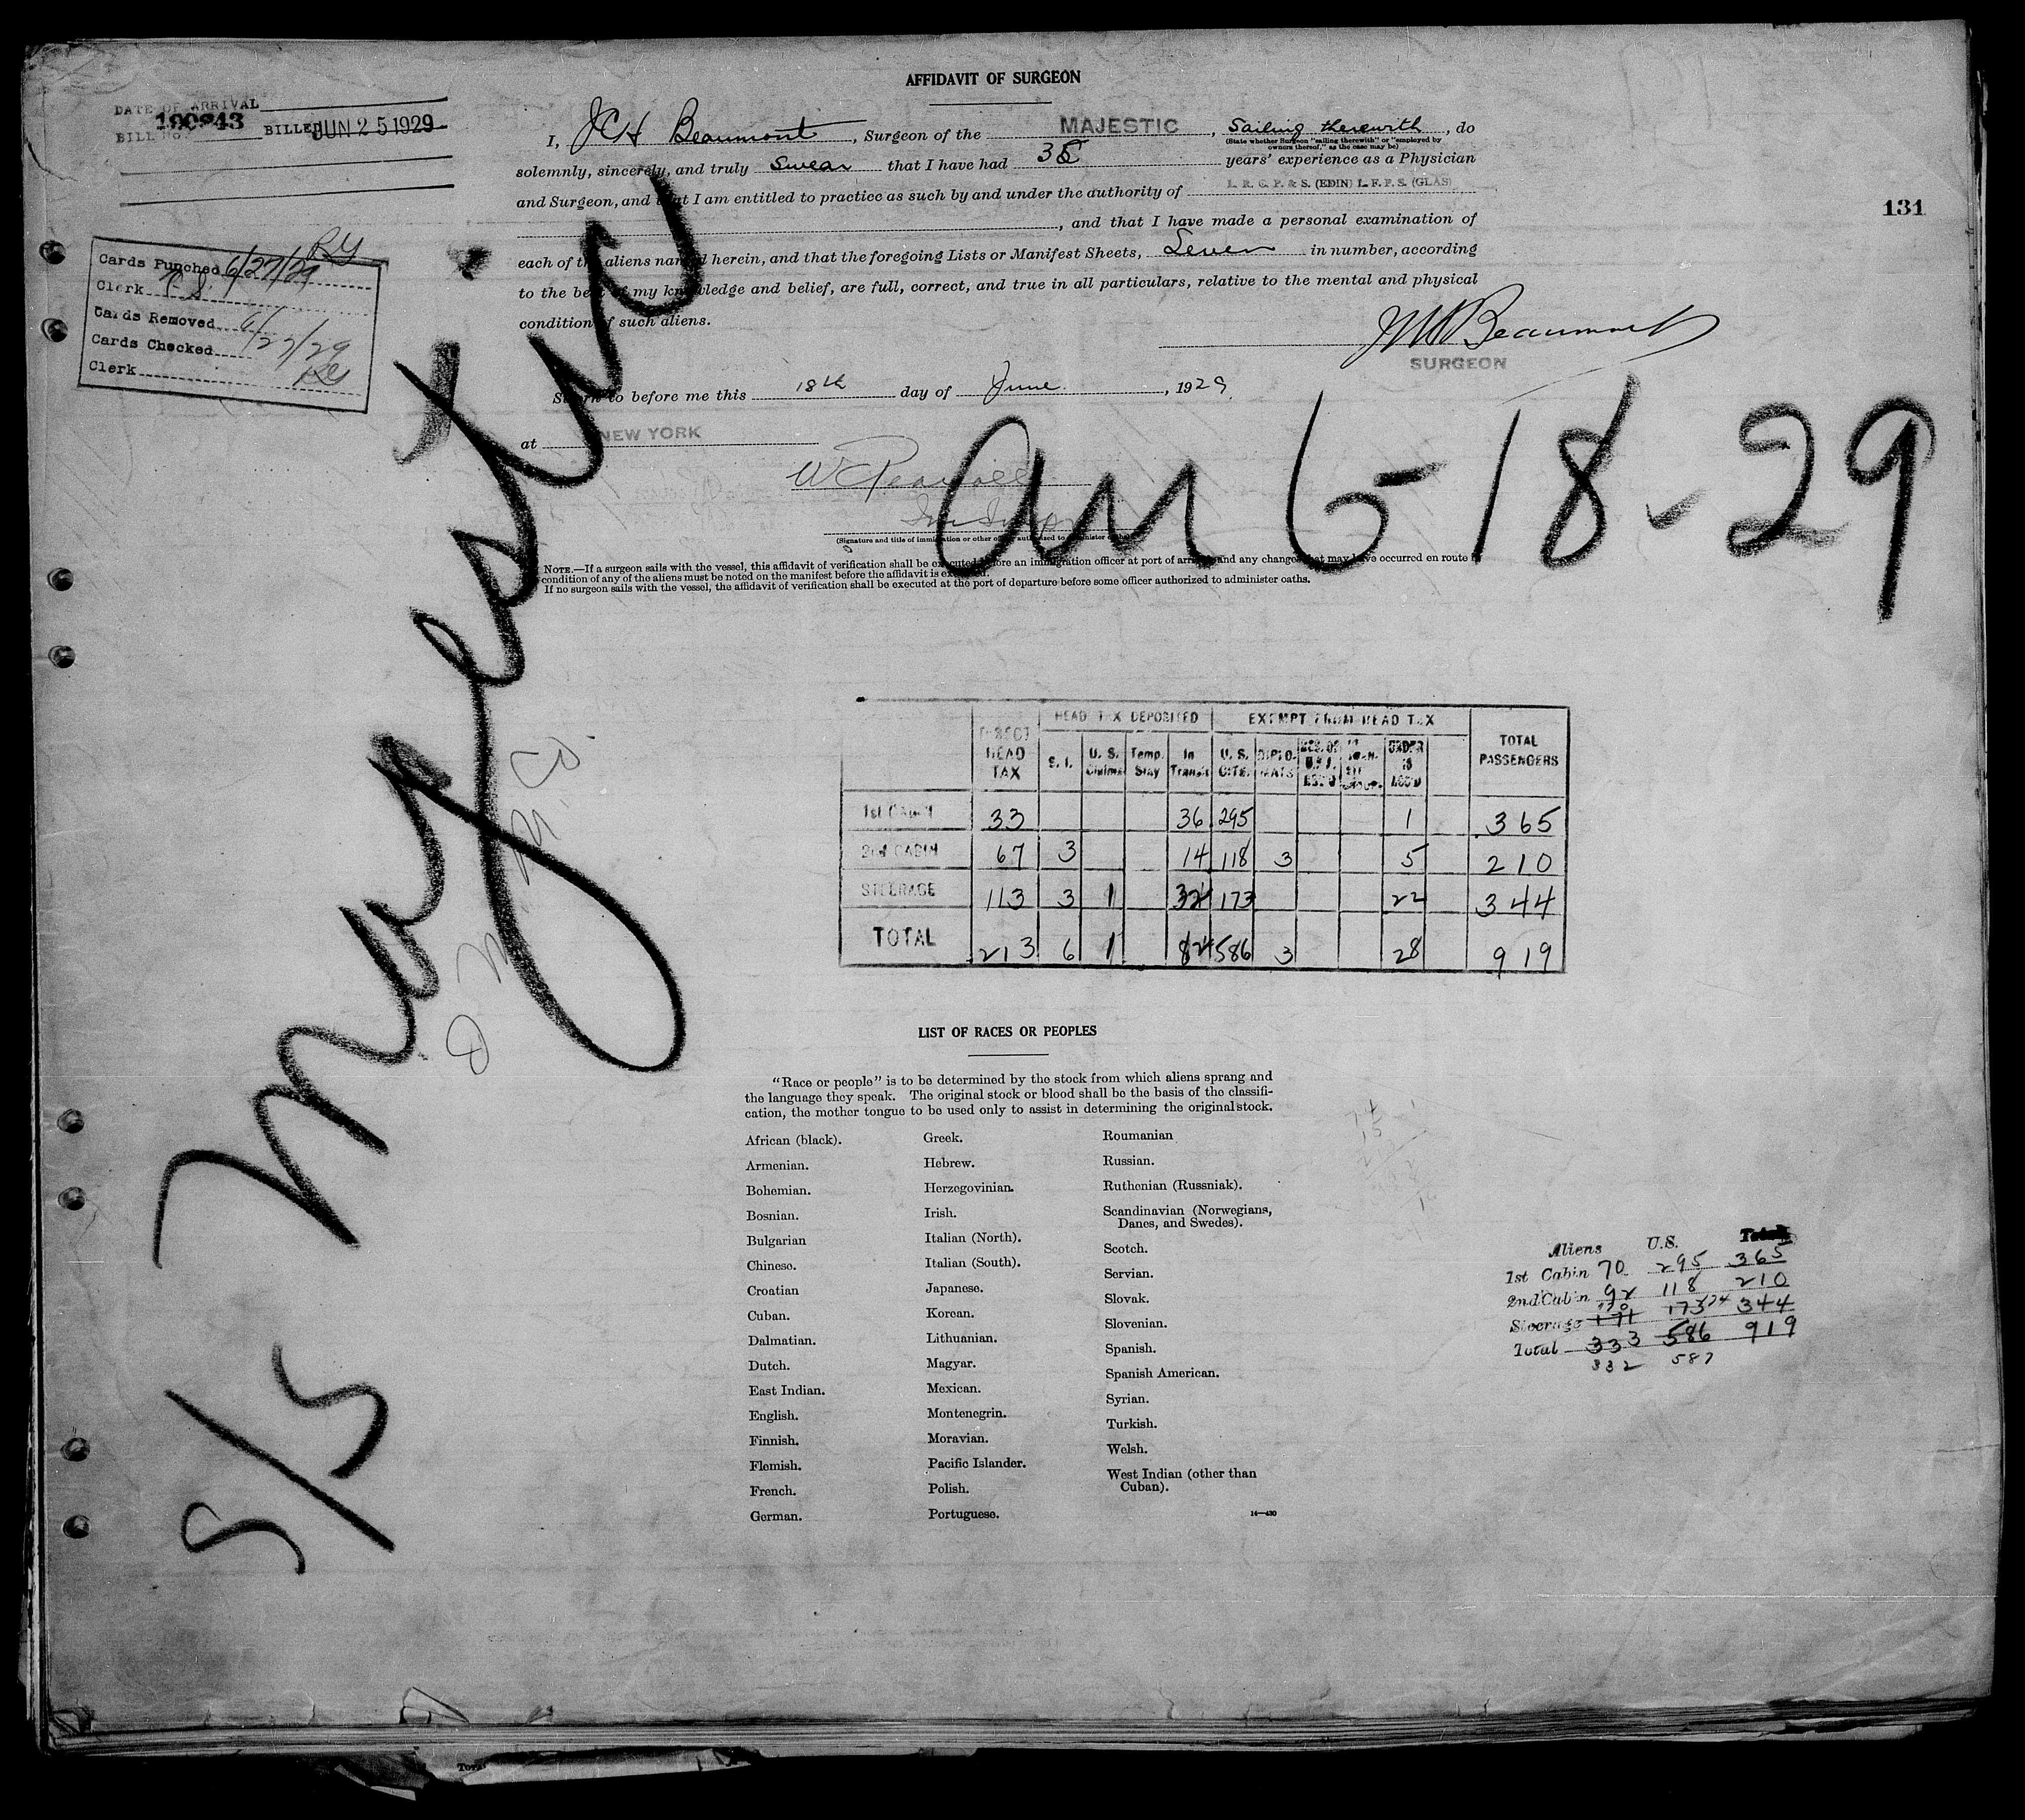 AFFIDAVIT OF SURGEON
DATE OF ARRIVAL
BILL No. 190843 BILLED JUN 25 1929
I, JCH Beaumont, Surgeon of the MAJESTIC, Sailing therewith, do
(State whether Surgeon "sailing therewith" or "employed by
owners thereof," as the case may be)
solemnly, sincerely, and truly swear that I have had 38 years' experience as a Physician
and Surgeon, and that I am entitled to practice as such by and under the authority of L. R. C. P. & S. (EDIN) L. F. P. S. (GLAS)
, and that I have made a personal examination of
each of the aliens named herein, and that the foregoing Lists or Manifest Sheets, Seven in number, according
to the best of my knowledge and belief, are full, correct, and true in all particulars, relative to the mental and physical
condition of such aliens.
131
Cards Punched 6/27/29 RY
Clerk
Cards Removed 6/
Cards Checked 27/29
Clerk
JCH Beaumont
SURGEON
Sworn to before me this 18th day of June, 1929.
at NEW YORK
(Signature and title of immigration or other officer authorized to administer
NOTE.—If a surgeon sails with the vessel, this affidavit of verification shall be executed before an immigration officer at port of arrival and any changes that may have occurred en route in
condition of any of the aliens must be noted on the manifest before the affidavit is executed.
If no surgeon sails with the vessel, the affidavit of verification shall be executed at the port of departure before some officer authorized to administer oaths.
S/S Majestic
arr 6-18-29
DIRECT HEAD TAX HEAD TAX DEPOSITED EXEMPT FROM HEAD TAX TOTAL PASSENGERS
S. I. U. S. Claims Temp. Stay In Transit U. S. CITZ. DIPLOMATS UNDER 16 ACC'D
1st CABIN 33 36 295 1 365
2nd CABIN 67 3 14 118 3 5 210
STEERAGE 113 3 1 32 173 22 344
TOTAL 213 6 1 82 586 3 28 919
LIST OF RACES OR PEOPLES
"Race or people" is to be determined by the stock from which aliens sprang and
the language they speak. The original stock or blood shall be the basis of the classifi-
cation, the mother tongue to be used only to assist in determining the original stock.
African (black).
Armenian.
Bohemian.
Bosnian.
Bulgarian
Chinese.
Croatian
Cuban.
Dalmatian.
Dutch.
East Indian.
English.
Finnish.
Flemish.
French.
German.
Greek.
Hebrew.
Herzegovinian.
Irish.
Italian (North).
Italian (South).
Japanese.
Korean.
Lithuanian.
Magyar.
Mexican.
Montenegrin.
Moravian.
Pacific Islander.
Polish.
Portuguese.
Roumanian
Russian.
Ruthenian (Russniak).
Scandinavian (Norwegians,
Danes, and Swedes).
Scotch.
Servian.
Slovak.
Slovenian.
Spanish.
Spanish American.
Syrian.
Turkish.
Welsh.
West Indian (other than
Cuban).
14—430
Aliens U.S. Total
1st Cabin 70 295 365
2nd Cabin 92 118 210
170 174
Steerage 171 173 344
Total 333 586 919
332 587